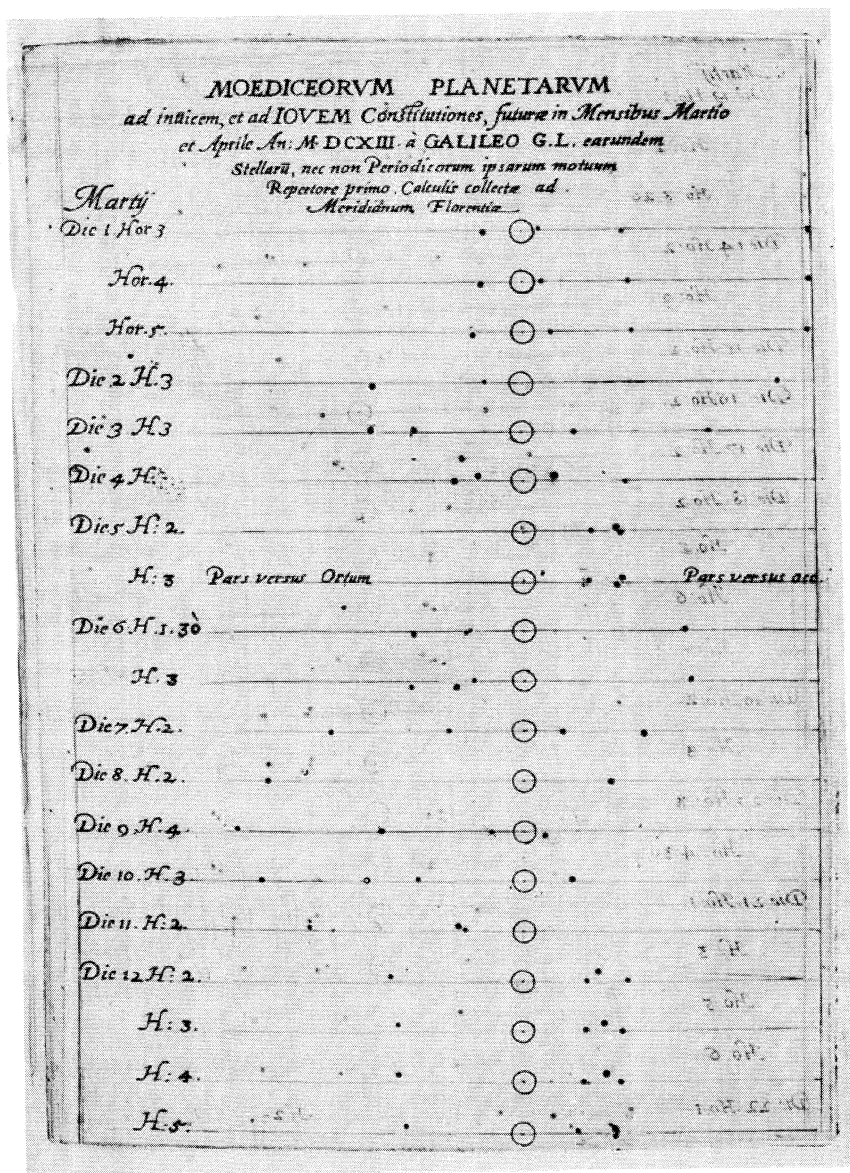 MOEDICEORVM PLANETARVM
ad inuicem, et ad IOVEM Constitutiones, futuræ in Mensibus Martio
et Aprile An: M DCXIII. à GALILEO G.L. earundem
Stellarū, nec non Periodicorum ipsarum motuum
Repertore primo. Calculis collectæ ad
Meridianum Florentiæ
Martij
Die 1 Hor 3
Hor. 4.
Hor. 5.
Die 2 H. 3
Die 3 H 3
Die 4 H:
Die 5 H: 2.
H: 3 Pars versus Ortum Pars versus occ.
Die 6. H. 1. 30
H. 3
Die 7. H. 2.
Die 8. H. 2.
Die 9 H. 4.
Die 10. H. 3
Die 11. H: 2.
Die 12 H: 2.
H: 3.
H: 4.
H. 5.